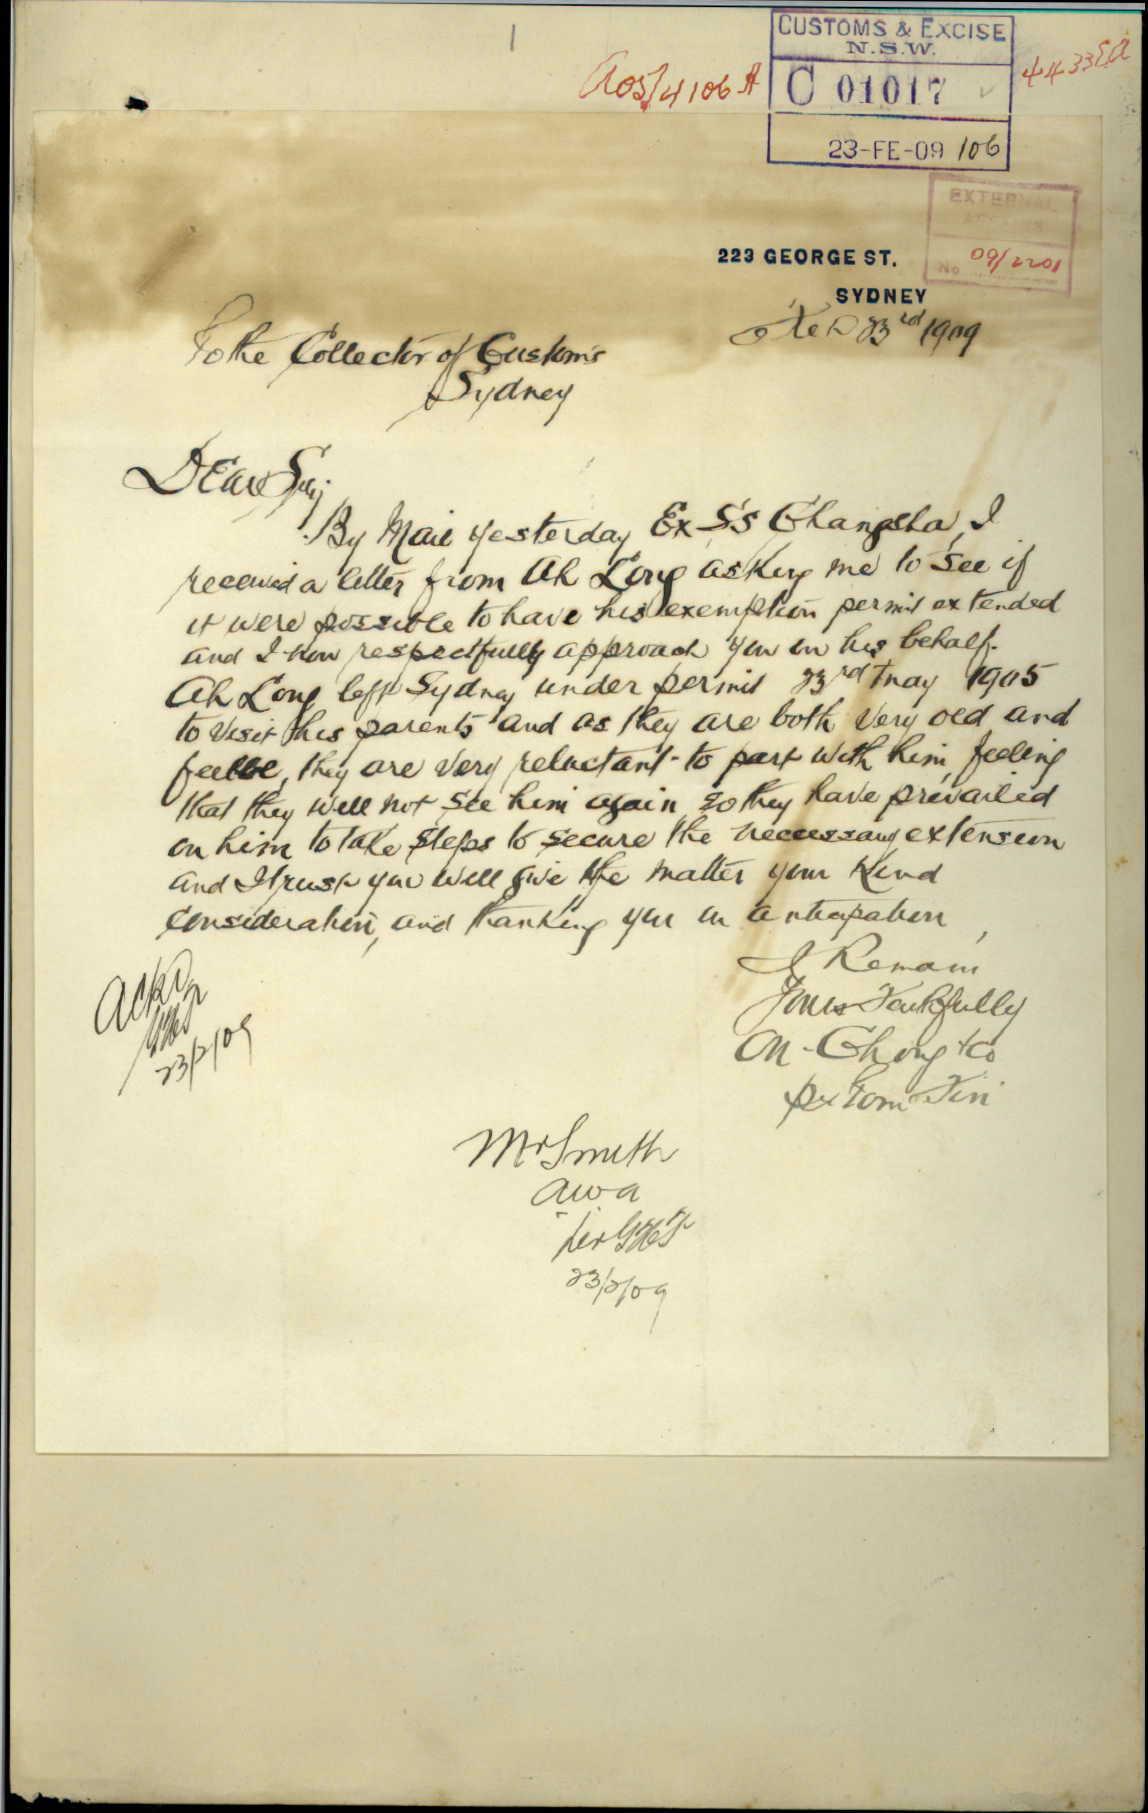 1
CUSTOMS & EXCISE
N.S.W.
C 01017
23-FE-09 106
A05/4106 A
4433EA
EXTERNAL
No 09/2201
223 GEORGE ST.
SYDNEY
Feb 23rd 1909
To the Collector of Customs
Sydney
Dear Sir,
By Mail yesterday Ex S.S Changsha, I
received a letter from Ah Long asking me to see if
it were possible to have his exemption permit extended
and I now respectfully approach you on his behalf.
Ah Long left Sydney under permit 23rd May 1905
to visit his parents and as they are both very old and
feeble, they are very reluctant to part with him, feeling
that they will not see him again so they have prevailed
on him to take steps to secure the necessary extension
and I trust you will give the matter your kind
consideration, and thanking you in anticipation,
I Remain
Yours Faithfully
On Chong & Co
per Tom Fin
Ackd
23/2/09
Mr Smith
23/2/09